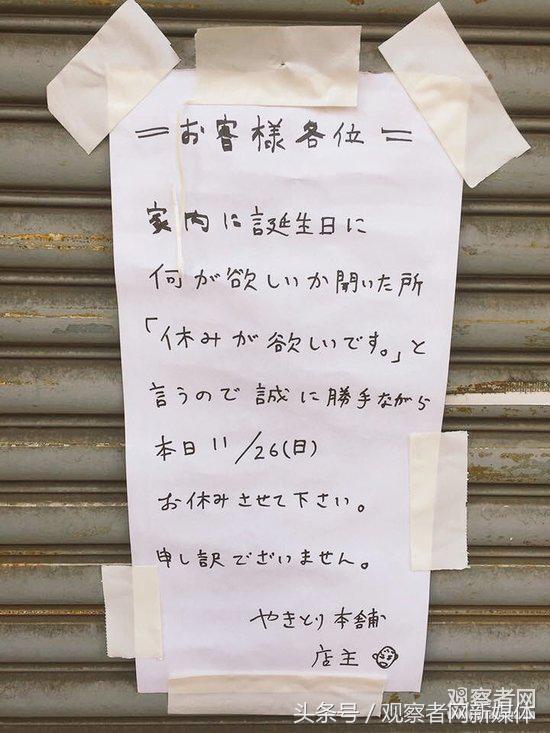 ＝お客様各位＝
家内に誕生日に
何が欲しいか聞いた所
「休みが欲しいです。」と
言うので誠に勝手ながら
本日11/26(日)
お休みさせて下さい。
申し訳でざいません。
やきとり本舗
店主
观察者网
头条号/观察者网新媒体